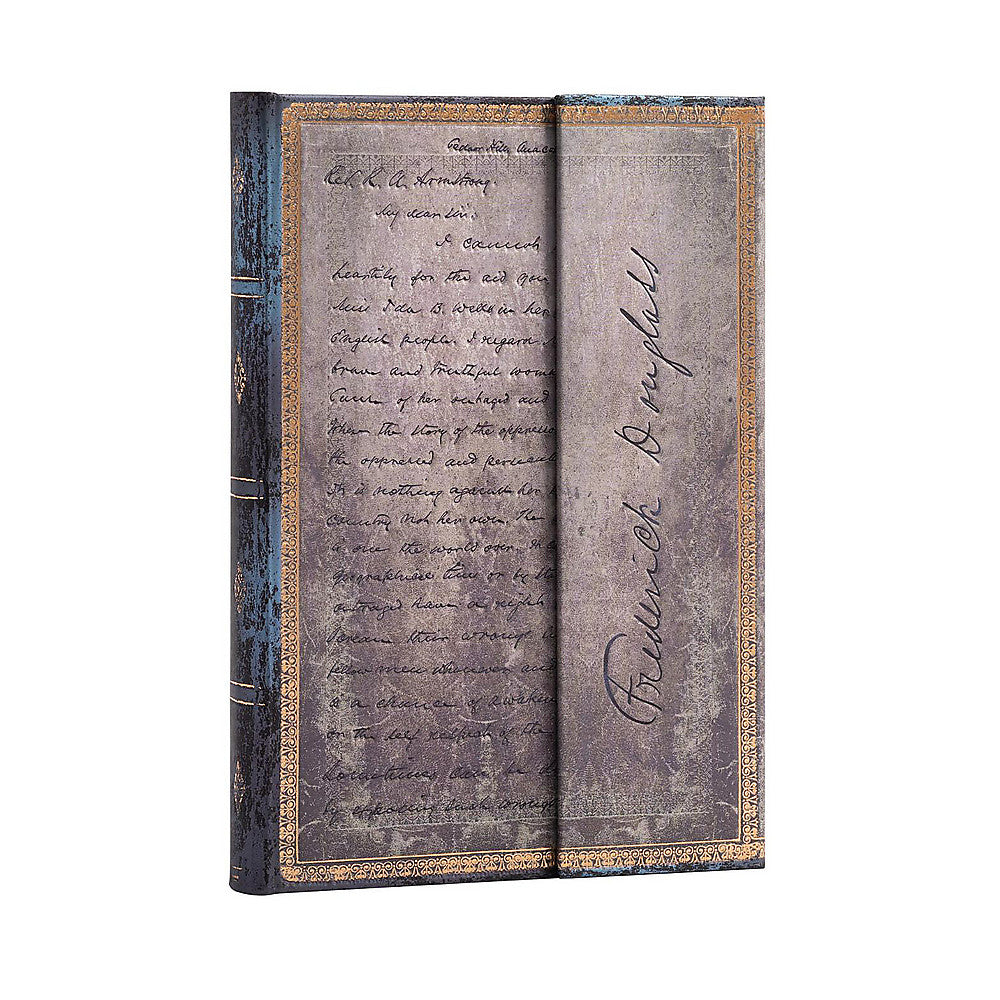 Cedar Hill, Anaco
Rev. R. A. Armstrong.
My dear Sir.
I cannot
heartily for the aid you
Miss Ida B. Wells in her
English people. I regard
brave and truthful woma
Cause of her outraged and
Where the story of the oppresse
the oppressed and persecut
It is nothing against her
Country not her own. The
is one the world over.
time or by
outraged have a right
their wrongs
fellow men wherever and
is a chance of awaken
on the self respect of the
Sometimes can be
by exposing such wrongs
Frederick Douglass